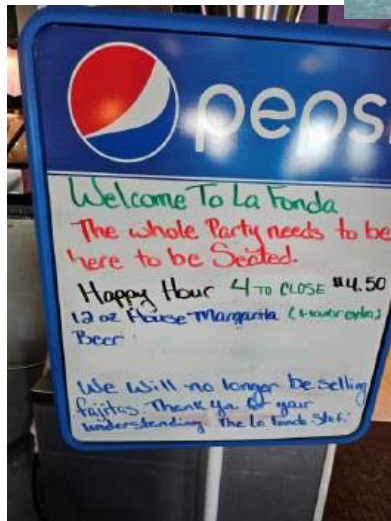 pepsi
Welcome To La Fonda
The whole Party needs to be
here to be Seated.
Happy Hour 4 TO CLOSE $4.50
12 oz House Margarita (Flavor extra)
Beer
We will no longer be selling
fajitas. Thank you for your
understanding. The La Fonda Staf.